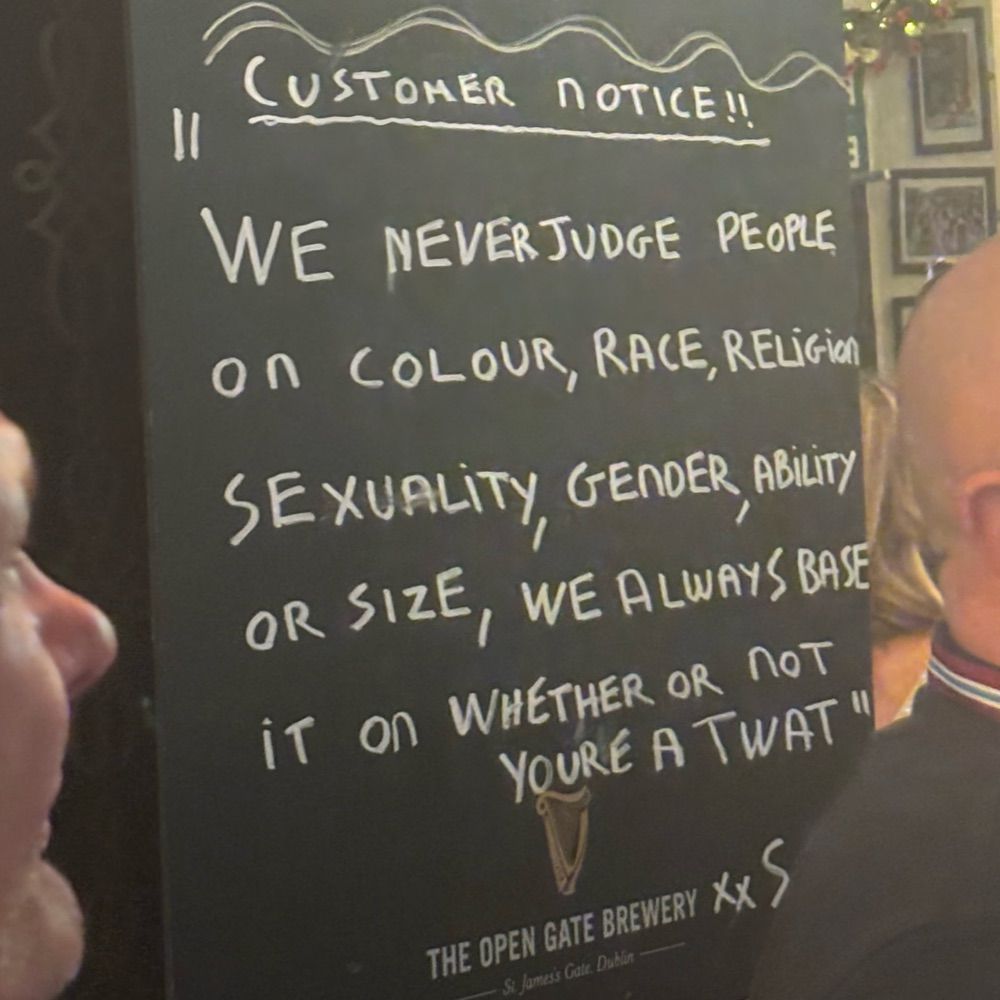 CUSTOMER NOTICE!!
"WE NEVER JUDGE PEOPLE
ON COLOUR, RACE, RELIGION
SEXUALITY, GENDER, ABILITY
OR SIZE, WE ALWAYS BASE
IT ON WHETHER OR NOT
YOURE A TWAT"
XX S
THE OPEN GATE BREWERY
St. James's Gate. Dublin